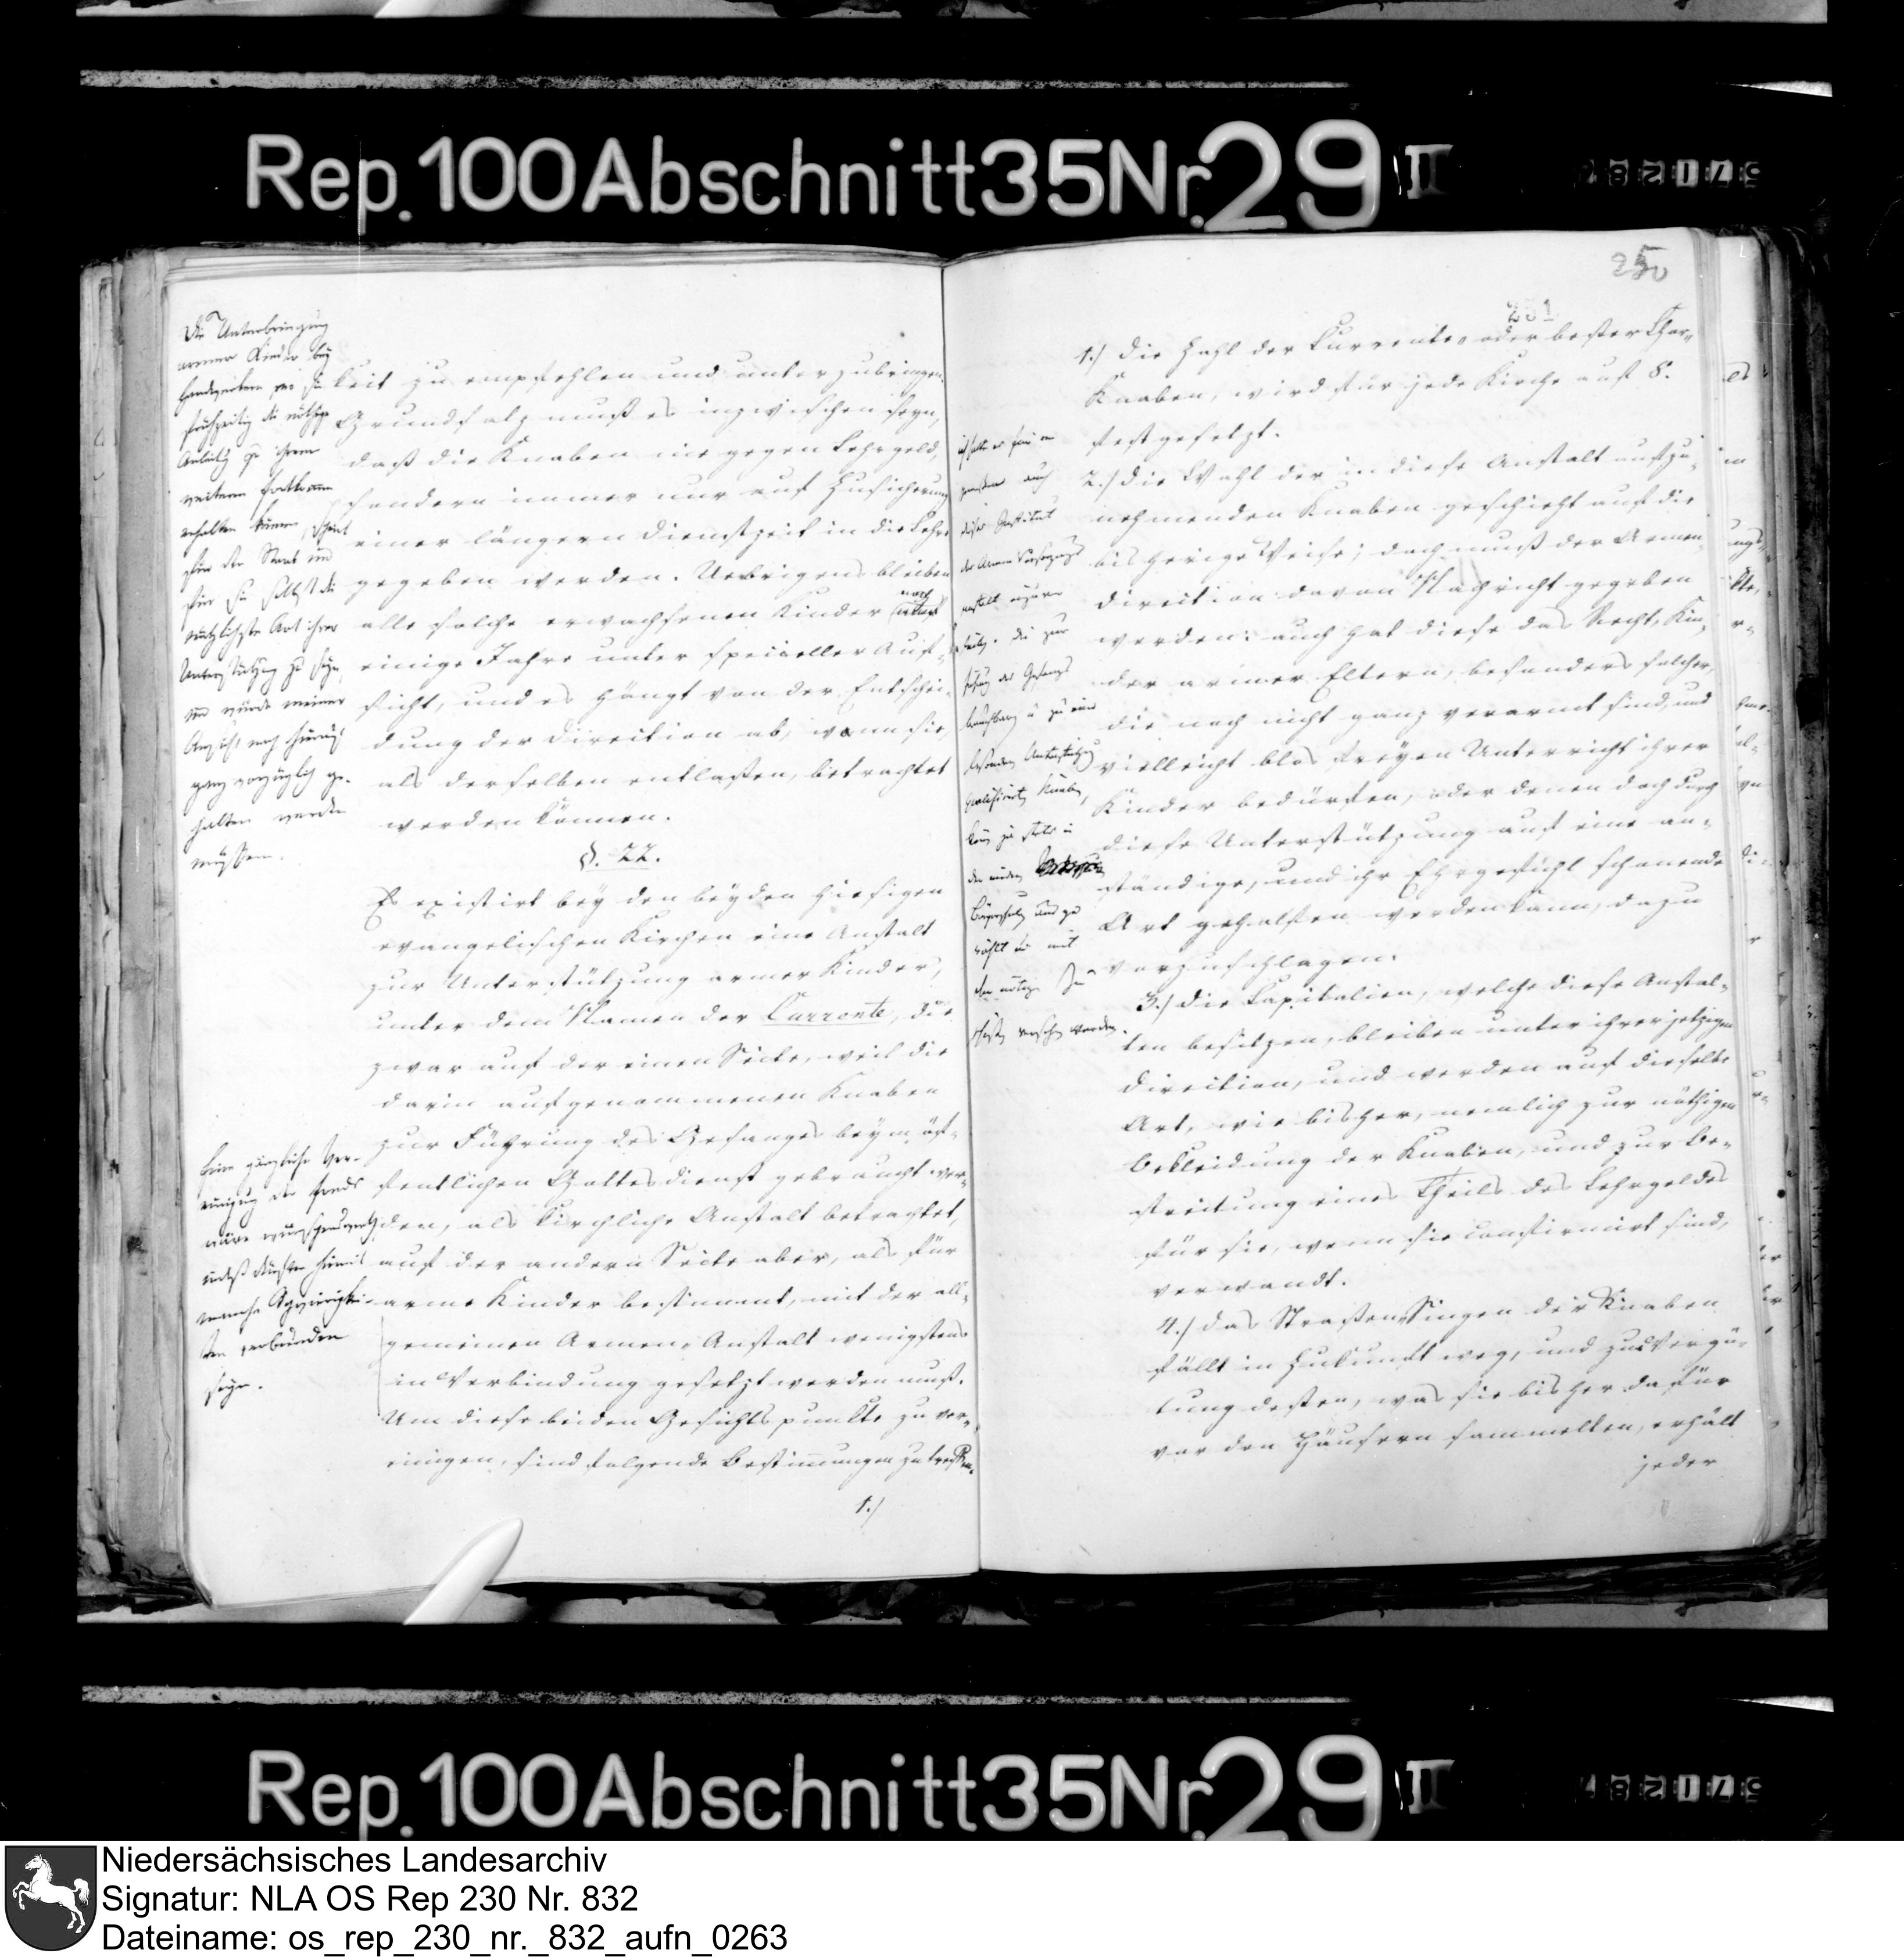 Rep. 100 Abschnitt 35 Nr. 29 II
Die Unterbringung
armer Kinder bey
Handwerkern, wo sie
frühzeitig die nöthige
Anleitg zu ihrem
weitern Fortkommen
erhalten können, scheint
für den Staat und
für sie selbst die
nützlichste Art ihrer
Unterstützung zu seyn,
und würde meiner
Ansicht nach hierauf
ganz vorzüglich ge-
halten werden
müssen.
keit zu empfehlen und unterzubringen.
Grundsatz muß es inzwischen seyn,
daß die Knaben nie gegen Lehrgeld,
sondern immer nur auf Zusicherung
einer längern Dienstzeit in die Lehre
gegeben werden. Uebrigens bleiben
alle solche erwachsenen Kinder noch
einige Jahre unter specieller Auf-
sicht, und es hängt von der Entschei-
dung der Direction ab, wann sie,
als derselben entlaßen, betrachtet
werden können.
§. 22.
Es existirt bey den beyden hiesigen
evangelischen Kirchen eine Anstalt
zur Unterstützung armer Kinder,
unter dem Namen der Currente, die
zwar auf der einen Seite, weil die
darin aufgenommenen Knaben
zur Führung des Gesanges beym öf-
fentlichen Gottesdienst gebraucht wer-
den, als kirchliche Anstalt betrachtet,
auf der andern Seite aber, als für
arme Kinder bestimmt, mit der all-
gemeinen Armen-Anstalt wenigstens
in Verbindung gesetzt werden muß.
Um diese beiden Gesichtspunkte zu ver-
einigen, sind folgende Bestimungen zu treffen.
1./
Eine gänzliche Ver-
einigung der Fonds
wäre wünschenswerth,
indeß dürften hiemit
manche Schwierigkei-
ten verbunden
seyn.
250
281
1./ Die Zahl der Currente- oder bester Chor-
Knaben, wird für jede Kirche auf 8.
festgesetzt.
2./ Die Wahl der in diese Anstalt aufzu-
nehmenden Knaben geschieht auf die
bisherige Weise; doch muß der Armen-
Direction davon Nachricht gegeben
werden: auch hat diese das Recht, Kin-
der armer Eltern, besonders solcher,
die noch nicht ganz verarmt sind, und
vielleicht blos freyen Unterricht ihrer
Kinder bedürfen, oder denen doch durch
diese Unterstützung auf eine an-
ständige, und ihr Ehrgefühl schonende
Art geholfen werden kann, dazu
vorzuschlagen.
3./ Die Capitalien, welche diese Anstal-
ten besitzen, bleiben unter ihrer jetzigen
Direction, und werden auf dieselbe
Art, wie bisher, nemlich zur nöthigen
Bekleidung der Knaben, und zur Be-
streitung eines Theils des Lehrgeldes
für sie, wenn sie confirmirt sind,
verwandt.
4./ Das Straßen-Singen der Knaben
fällt in Zukunft weg, und zur Vergü-
tung deßen, was sie bisher dafür
vor den Häusern sammelten, erhält
jeder
auch
dieses Institut
der Armen Versorgungs
anstalt
die zur
und zu
mit
werden.
Rep. 100 Abschnitt 35 Nr. 29 II
Niedersächsisches Landesarchiv
Signatur: NLA OS Rep 230 Nr. 832
Dateiname: os_rep_230_nr._832_aufn_0263